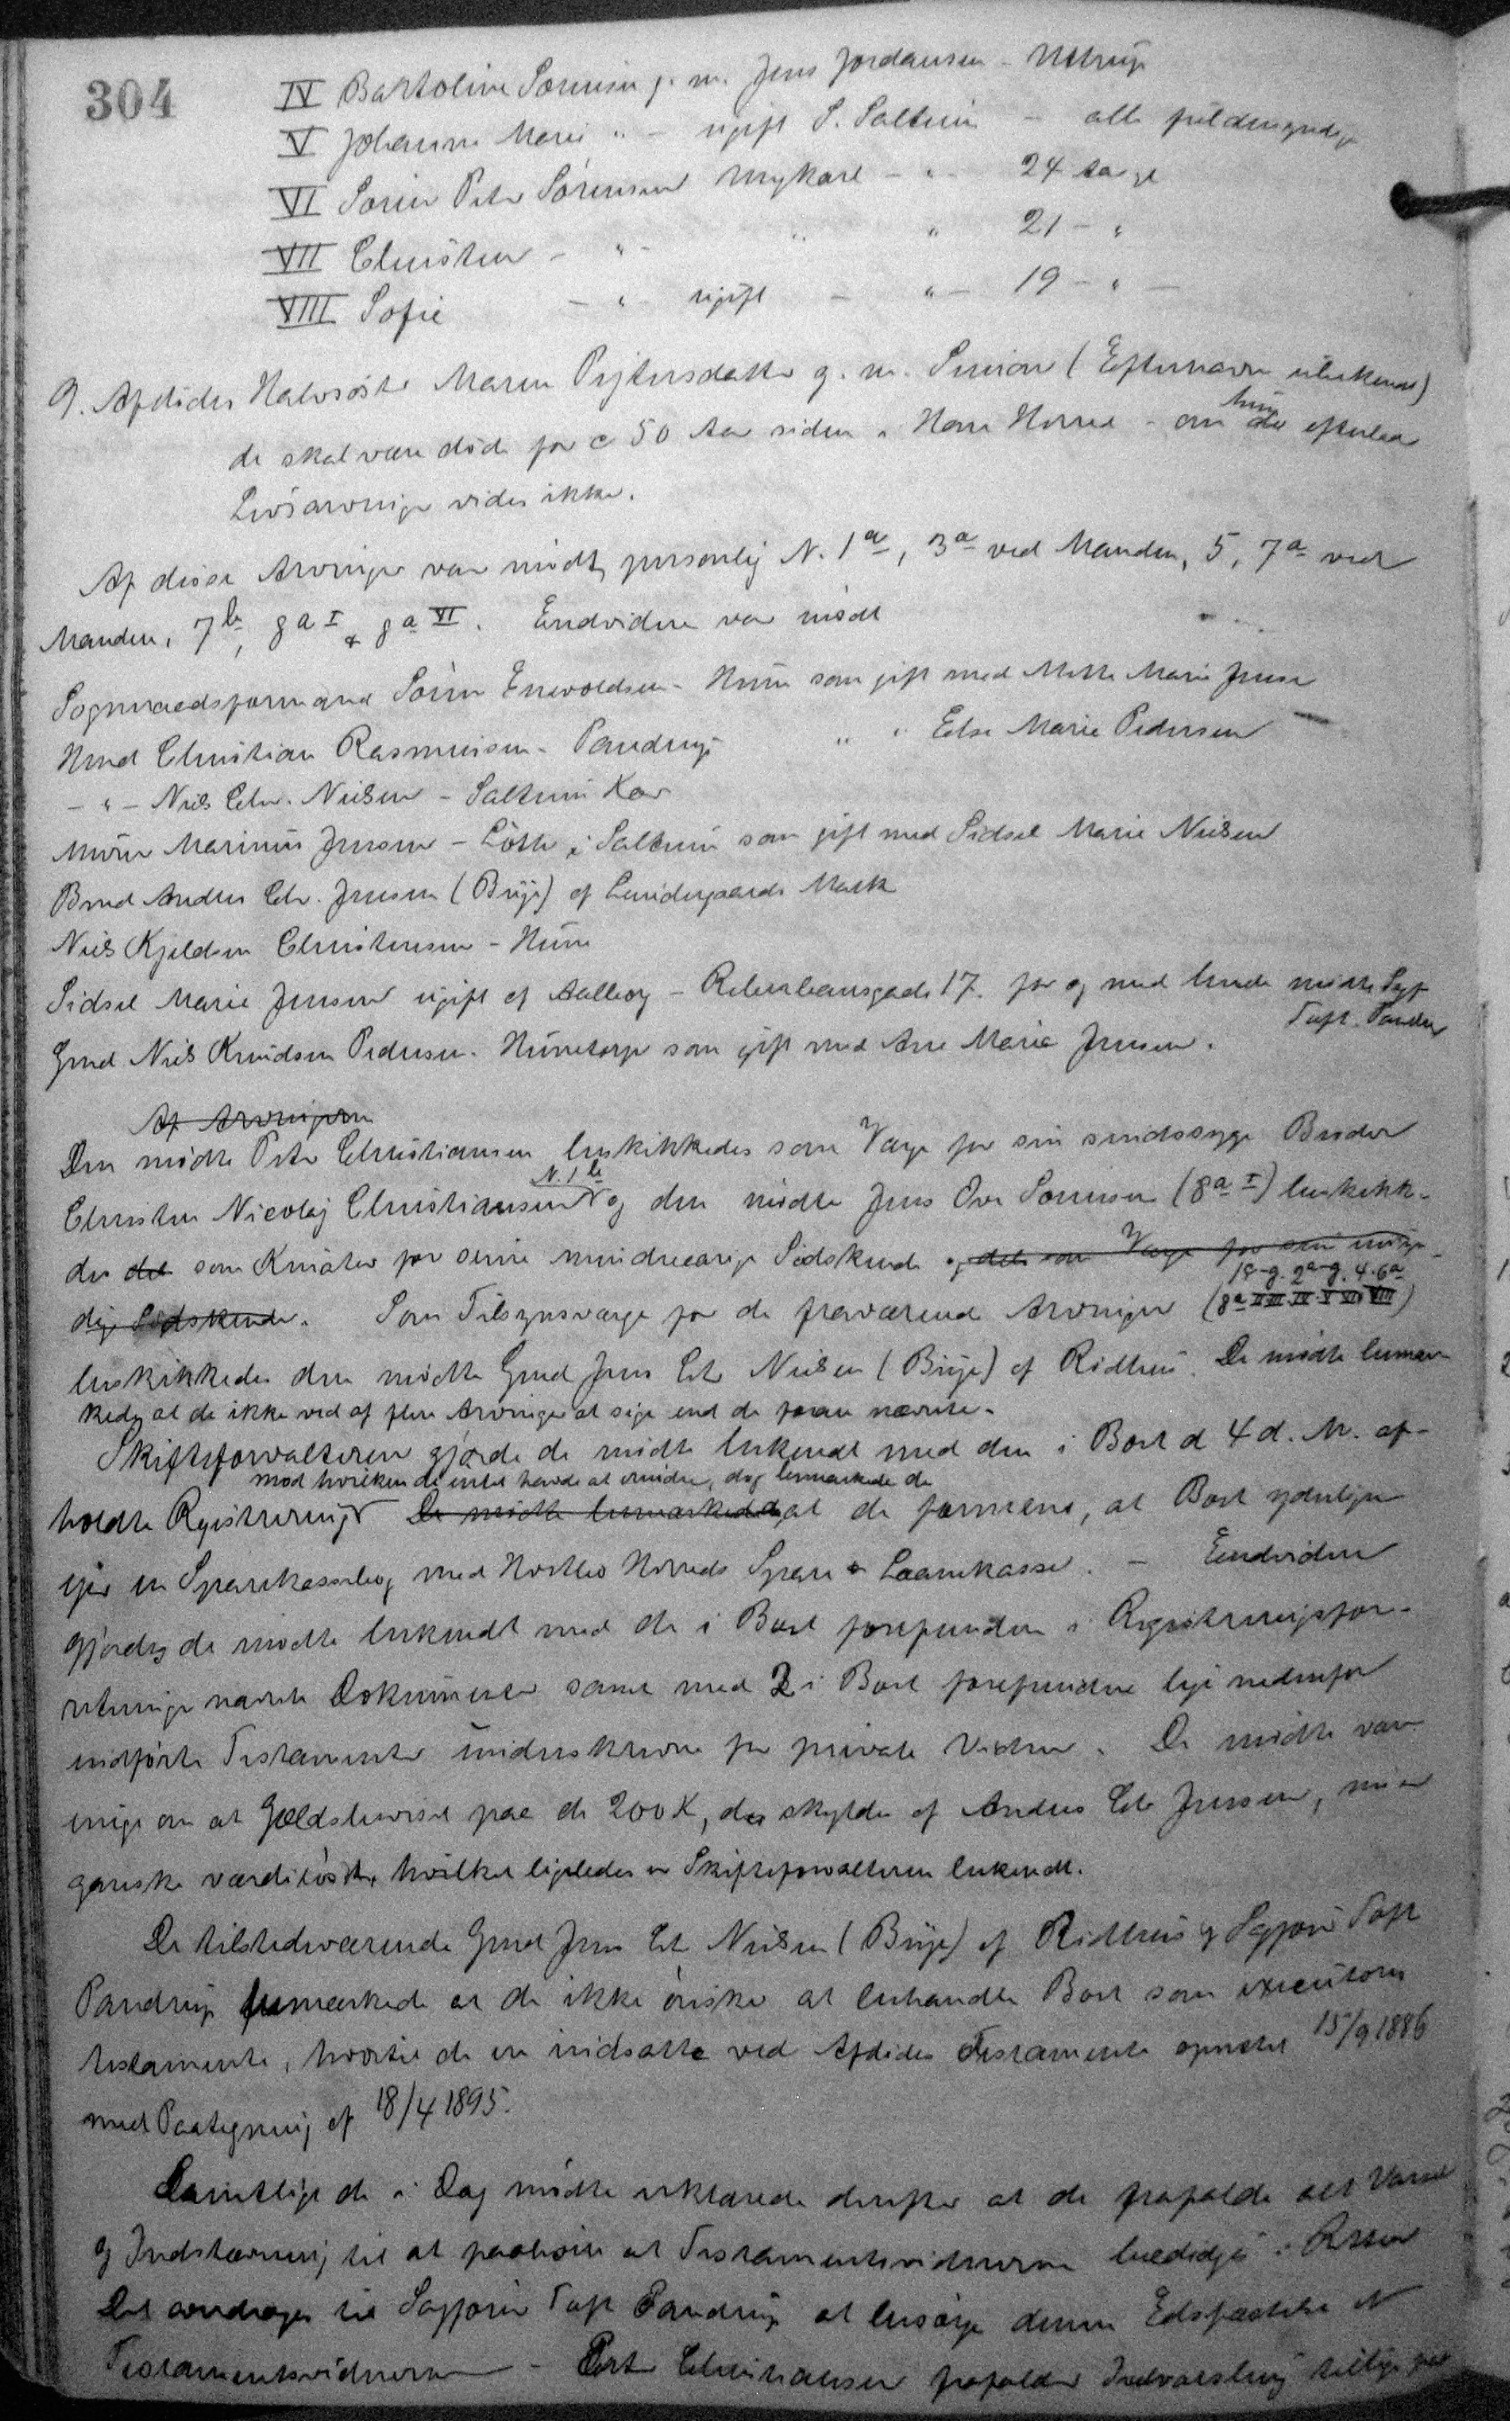 304
IV Bartoline Sørensen g. m. Jens Jordansen - Ustrup
V Johanne Marie " - ugift S. Saltum - alle fuldmyndige
VI Søren Peter Sørensen Ungkarl - " - 24 Aar gl
VII Christen - " - " " 21 - "
VIII Sofie - " - ugift - " - 19 - " -
9. Afdødes Halvsøster Maren Pejtersdatter g. m. Simon (Efternavn ubekendt)
de skal være døde for c 50 Aar siden i Horns Herred - om hun der efterlod
Livsarvinger vides ikke.
Af disse Arvinger var mødt personlig N. 1a, 3a ved Manden, 5, 7a ved
Manden, 7b, 8a I & 8a VI. Endvidere var mødt
Sogneraadsformand Søren Enevoldsen - Hune som gift med Mette Marie Jensen
Hmd Christian Rasmussen - Pandrup " " Else Marie Pedersen
- " - Niels Chr. Nielsen - Saltum Kær
Murer Marinus Jensen - Løth i Saltum som gift med Sidsel Marie Nielsen
Bmd Anders Chr. Jensen (Brye) af Lundergaards Mark
Niels Kjeldsen Christensen - Hune
Sidsel Marie Jensen ugift af Aalborg - Reberbansgade 17. for og med hende mødte Sagf
Toft Pandrup
Gmd Niels Knudsen Pedersen - Hunetorp som gift med Ane Marie Jensen.
Af Arvingerne
Den mødte Peter Christiansen beskikkedes som Værge for sin sindssyge Broder
N. 1b
Christen Nicolaj Christiansen og den mødte Jens Ove Sørensen (8a I) beskikke-
des det som Kurator for sine mindreaarige Sødskende og det som Værge for sin umyn-
18-g. 2a-g. 4. 6a
dige Sødskende. Som Tilsynsværge for de fraværende Arvinger (8a II III IV V VII VIII)
beskikkedes den mødte Gmd Jens Chr Nielsen (Brye) af Rødhus. De mødte bemær-
kede, at de ikke ved af flere Arvinger at sige end de foran nævnte.
Skifteforvalteren gjorde de mødte bekendt med den i Boet d 4 d. M. af-
mod hvilken de intet havde at erindre, dog bemærkede de
holdte Registrering De mødte bemærkede at de formene, at Boet yderligere
ejer en Sparekassebog med Hvetbo Herreds Spare & Laanekasse. - Endvidere
gjordes de mødte bekendt med de i Boet forefundne i Registreringsfor-
retninge nævnte Dokumenter samt med 2 i Boet forefundne lige nedenfor
indførte Testamenter underskrevne for private Vidner. De mødte var
enige om at Gældsbeviset paa de 200 K, der skyldes af Anders Chr Jensen, nu er
ganske værdiløst, hvilket ligeledes er Skifteforvalteren bekendt.
De tilstedeværende Gmd Jens Chr Nielsen (Brye) af Rødhus og Sagfører Toft
Pandrup bemærkede at de ikke ønsker at behandle Boet som executores
testamenti, hvortil de er indsatte ved Afdødes Testamente oprettet 15/9 1886
med Paategning af 18/4 1895.
Samtlige de i Dag mødte erklærede derefter at de frafaldt alt Varsel
og Indstævning til at paahøre at Testamentsvidnerne beedige i Retten
Det overdroges til Sagfører Toft Pandrup at besørge denne Edsfæstelse af
Testamentsvidnerne - Peter Christiansen frafalder Indvarsling tillige paa